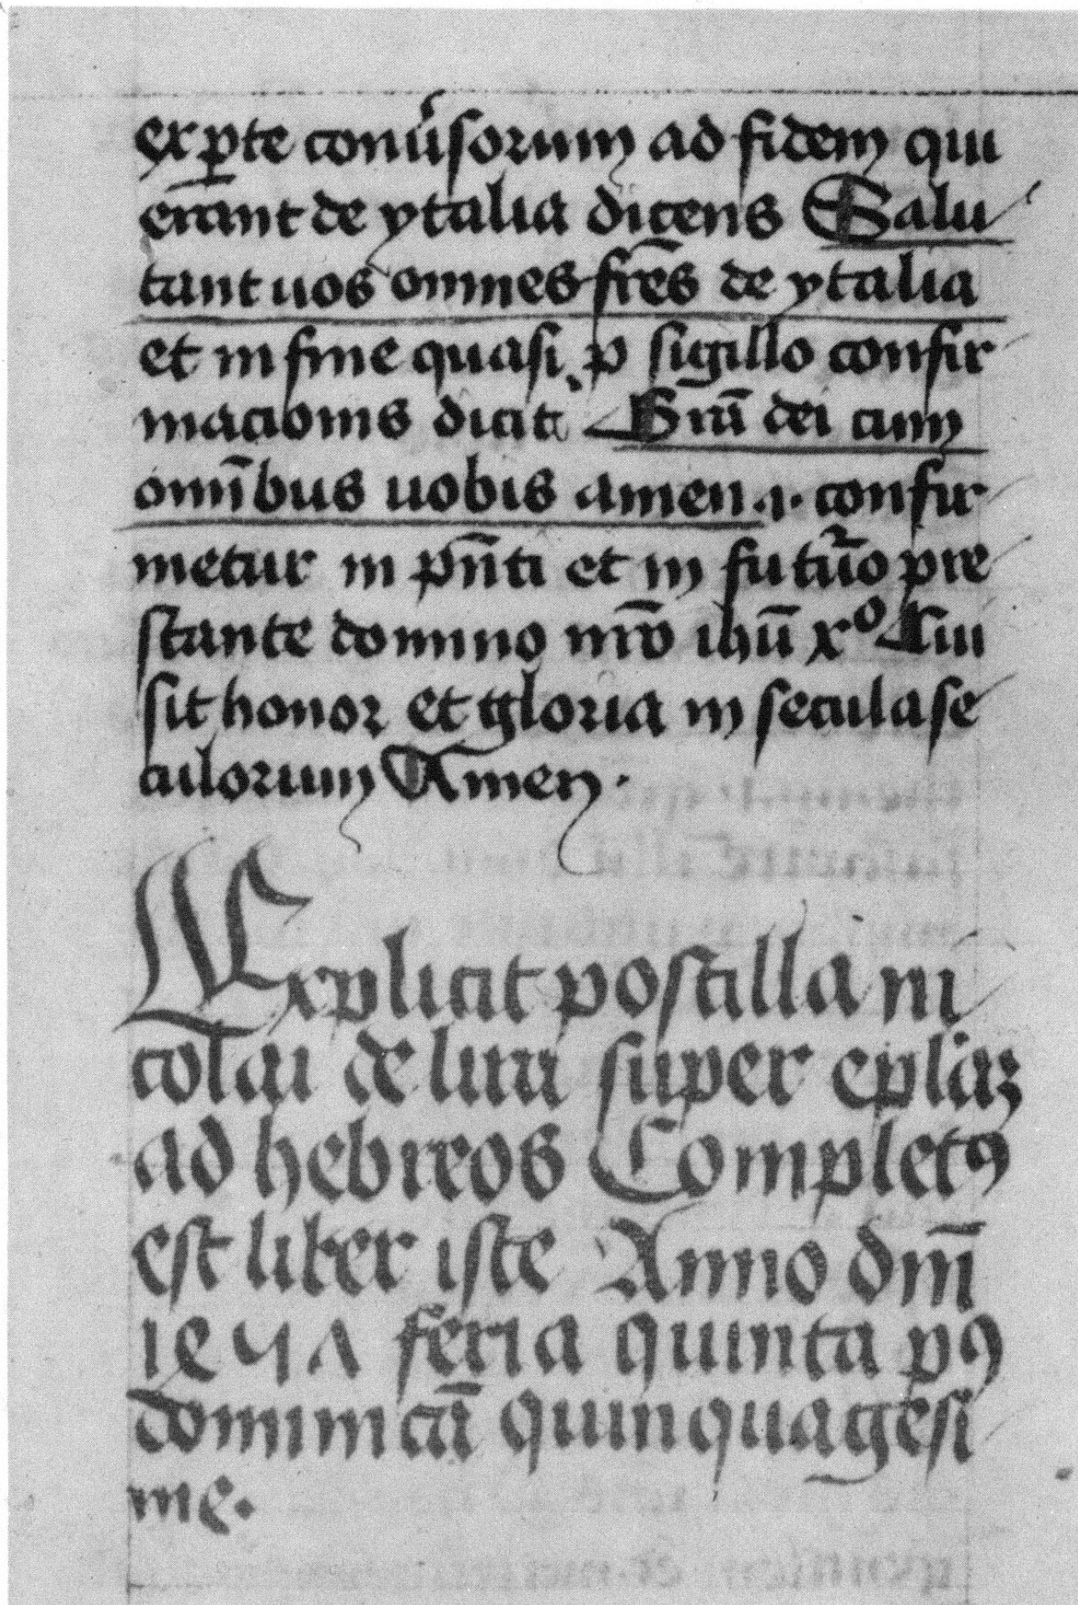 ex ꝑte conũsorum ad fidem qui
erant de ytalia dicens Salu
tant uos omnes fr̃es de ytalia
et in fine quasi p̱ sigillo confir
macionis dicit Gr̃a dei cum
om̃ibus uobis amen .i. confir
metur in pñti et in futuro pre
stante domino nr̃o ihũ xº Cui
sit honor et gloria in secula se
culorum Amen ·
Explicit postilla ni
colai de lira super ep̃laꝫ
ad hebreos Completꝰ
est liber iste Anno dñi
1471 feria quinta pꝰ
dominicã quinquagesi
me·